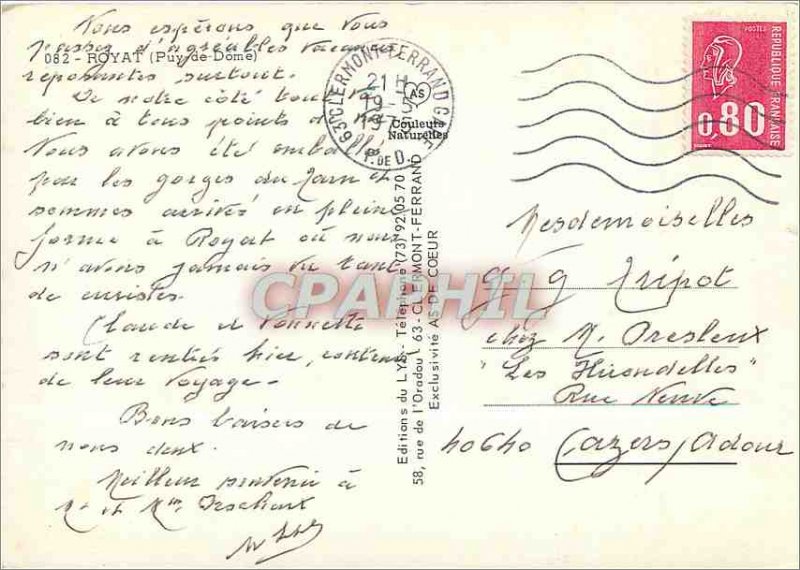 Nous espérons que vous
passez d'agréables vacances
082 - ROYAT (Puy-de-Dôme)
reposantes surtout.
De notre côté tout va
bien à tous points de
Nous avons été emballés
par les gorges du Tarn et
sommes arrivés en pleine
forme à Royat où nous
n'avons jamais vu tant
de curistes.
Claude et Vonnette
sont rentrés hier, contents
de leur voyage.
Bons baisers de
nous deux.
Meilleur souvenir à
M. et Mme
63 CLERMONT-FERRAND GARE
21 H
19-5
19
P. DE D.
AS
Couleurs
Naturelles
Editions du LYS - Téléphone (73) 92.05.70
58, rue de l'Oradou - 63 - CLERMONT-FERRAND
Exclusivité AS DE COEUR
POSTES
REPUBLIQUE FRANÇAISE
0,80
Mesdemoiselles
G. G. Tripot
chez M.
"Les Hirondelles"
Rue Neuve
40640 Cazers/Adour
CPAPHIL